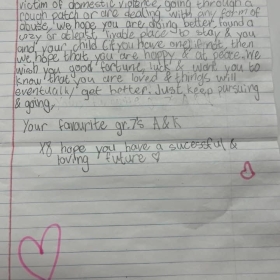 victim of domestic violence, going through a
rough patch or are dealing with any form of
abuse, we hope you are doing better, found a
cozy or atlepst livable place to stay & you
and your child (if you have one). If not, then
we hope that you are happy & at peace. We
wish you good fortune, luck & want you to
know that you are loved & things will
eventually get better. Just keep pursuing
& going.
Your favourite gr.7's A&K
hope you have a sucessful &
loving future